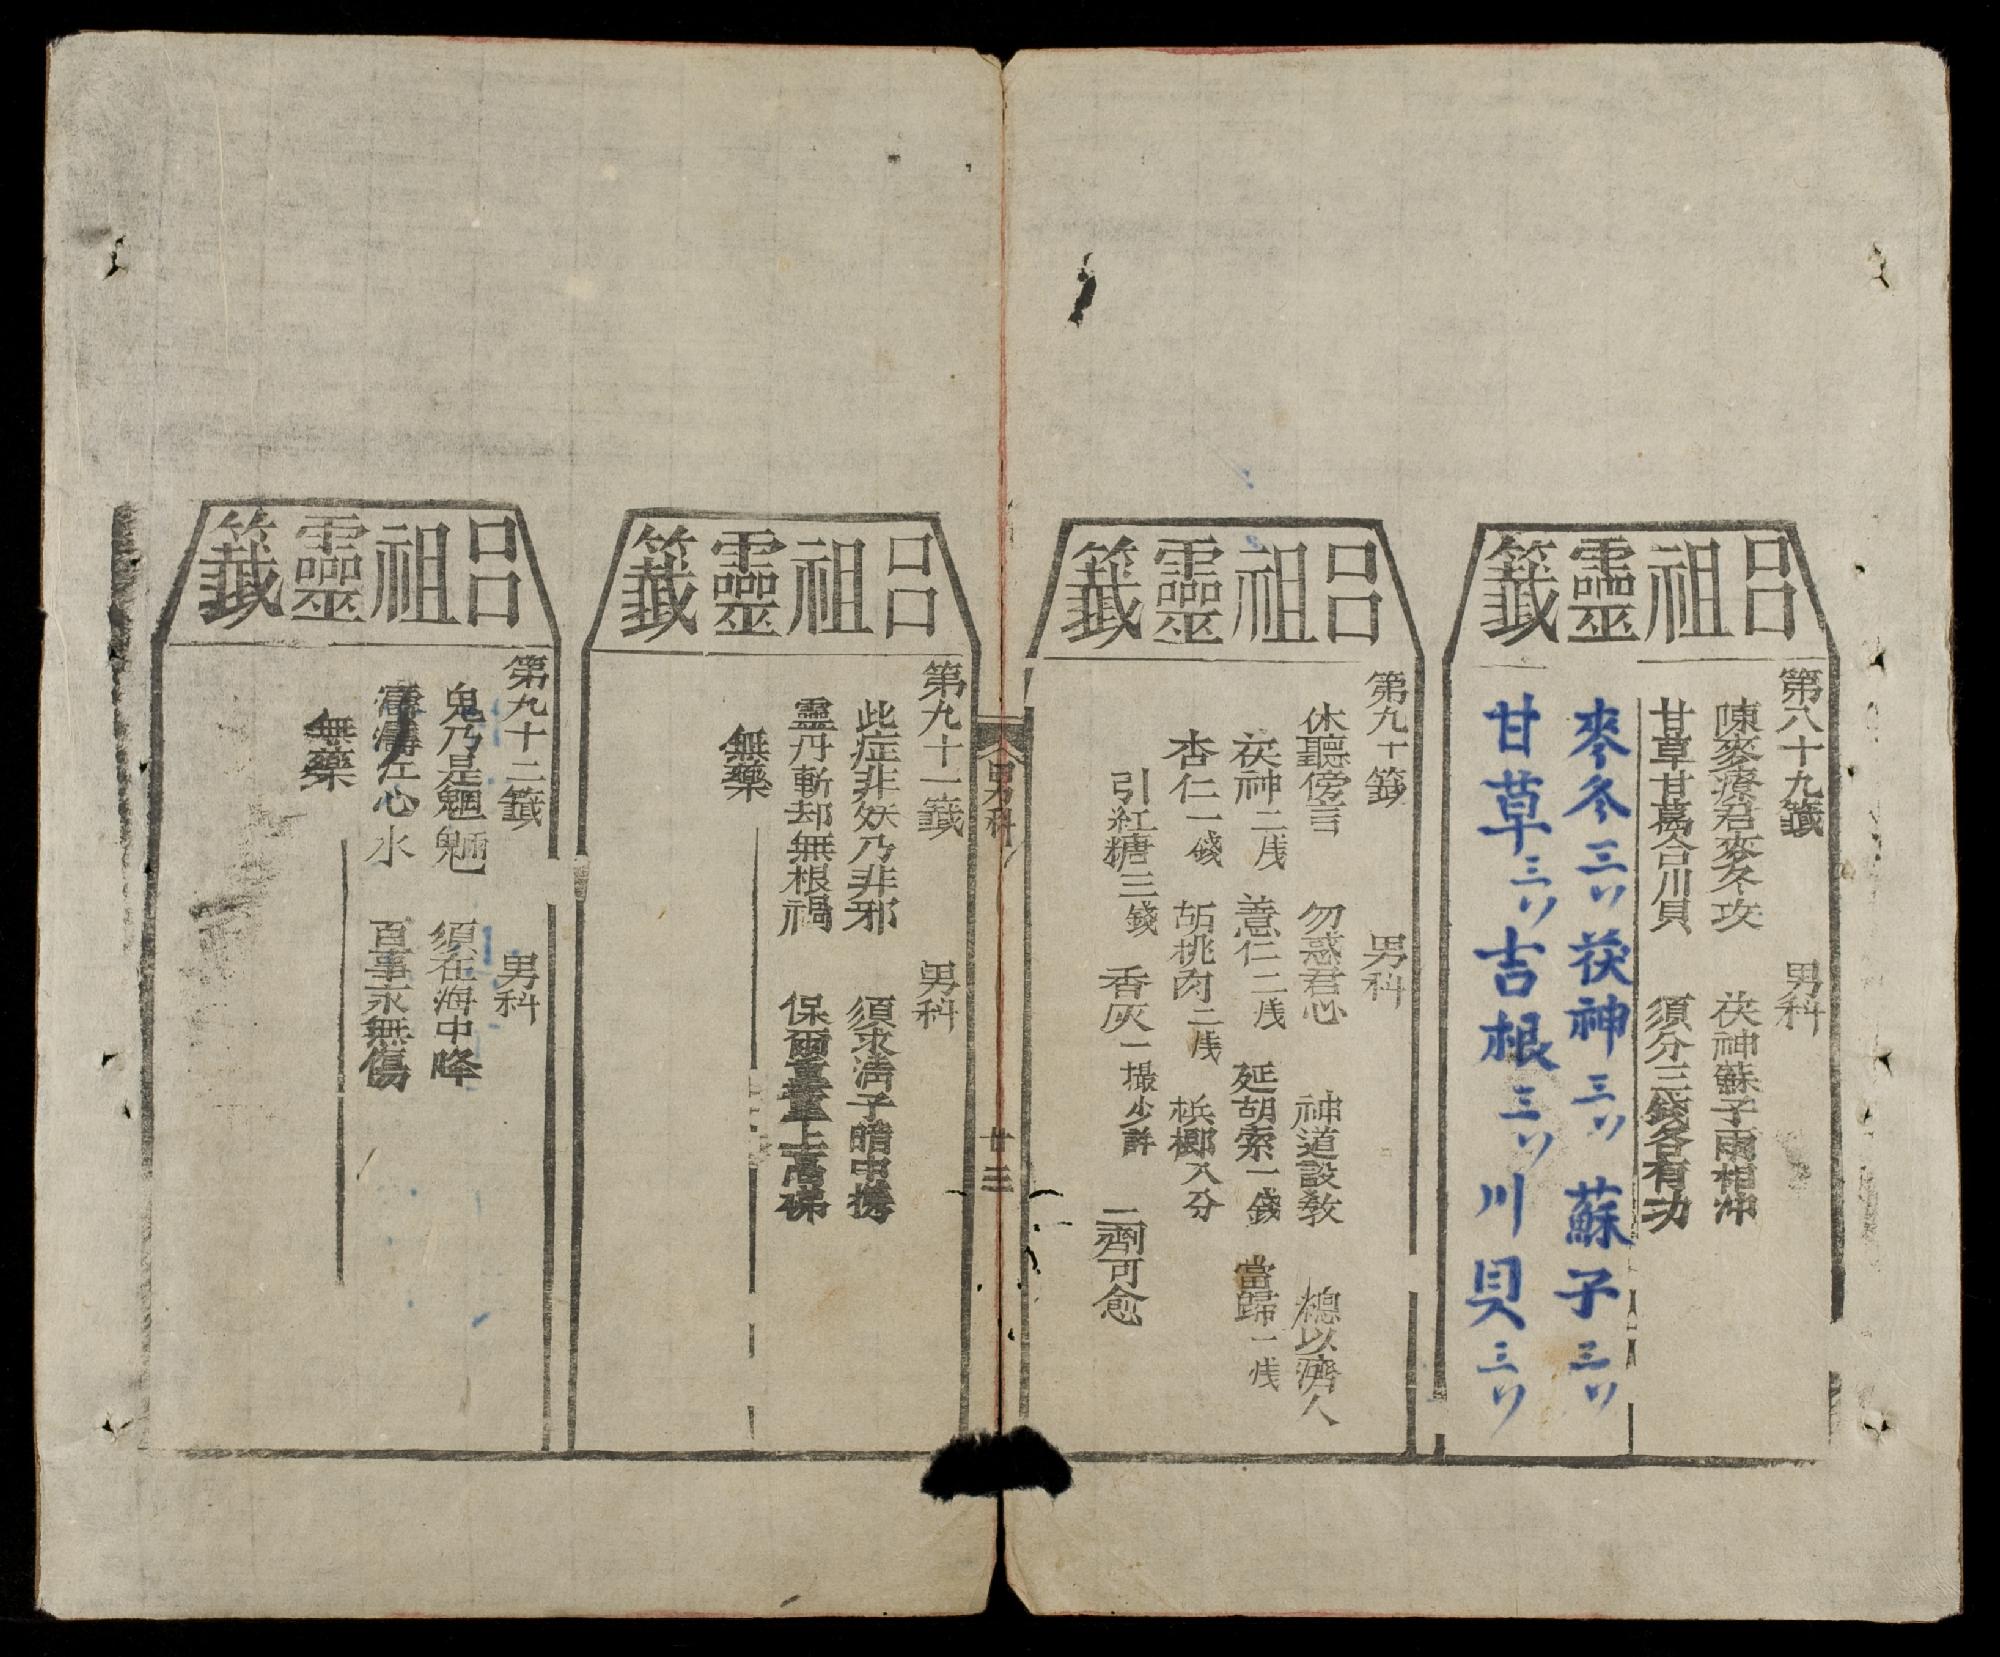 呂祖靈籤
第八十九籤 男科
陳麥療君麥冬攻 茯神蘇子兩相沖
甘草甘萬合川貝 須分三錢各有功
麥冬三 茯神三 蘇子三
甘草三 吉根三 川貝三
呂祖靈籤
第九十籤 男科
休聽傍言 勿惑君心 神道設教 總以濟人
茯神二戋 薏仁二戋 延胡索一錢 當歸一戋
杏仁一錢 胡桃肉二戋 梹榔八分
引紅糖三錢 香灰一撮少許 二劑可愈
男科 廿三
呂祖靈籤
第九十一籤 男科
此症非妖乃非邪 須求淸子暗中携
靈丹斬却無根禍 保爾上高梯
無藥
呂祖靈籤
第九十二籤 男科
鬼乃是魍魎 須在海中降
濤濤江心水 百事永無傷
無藥